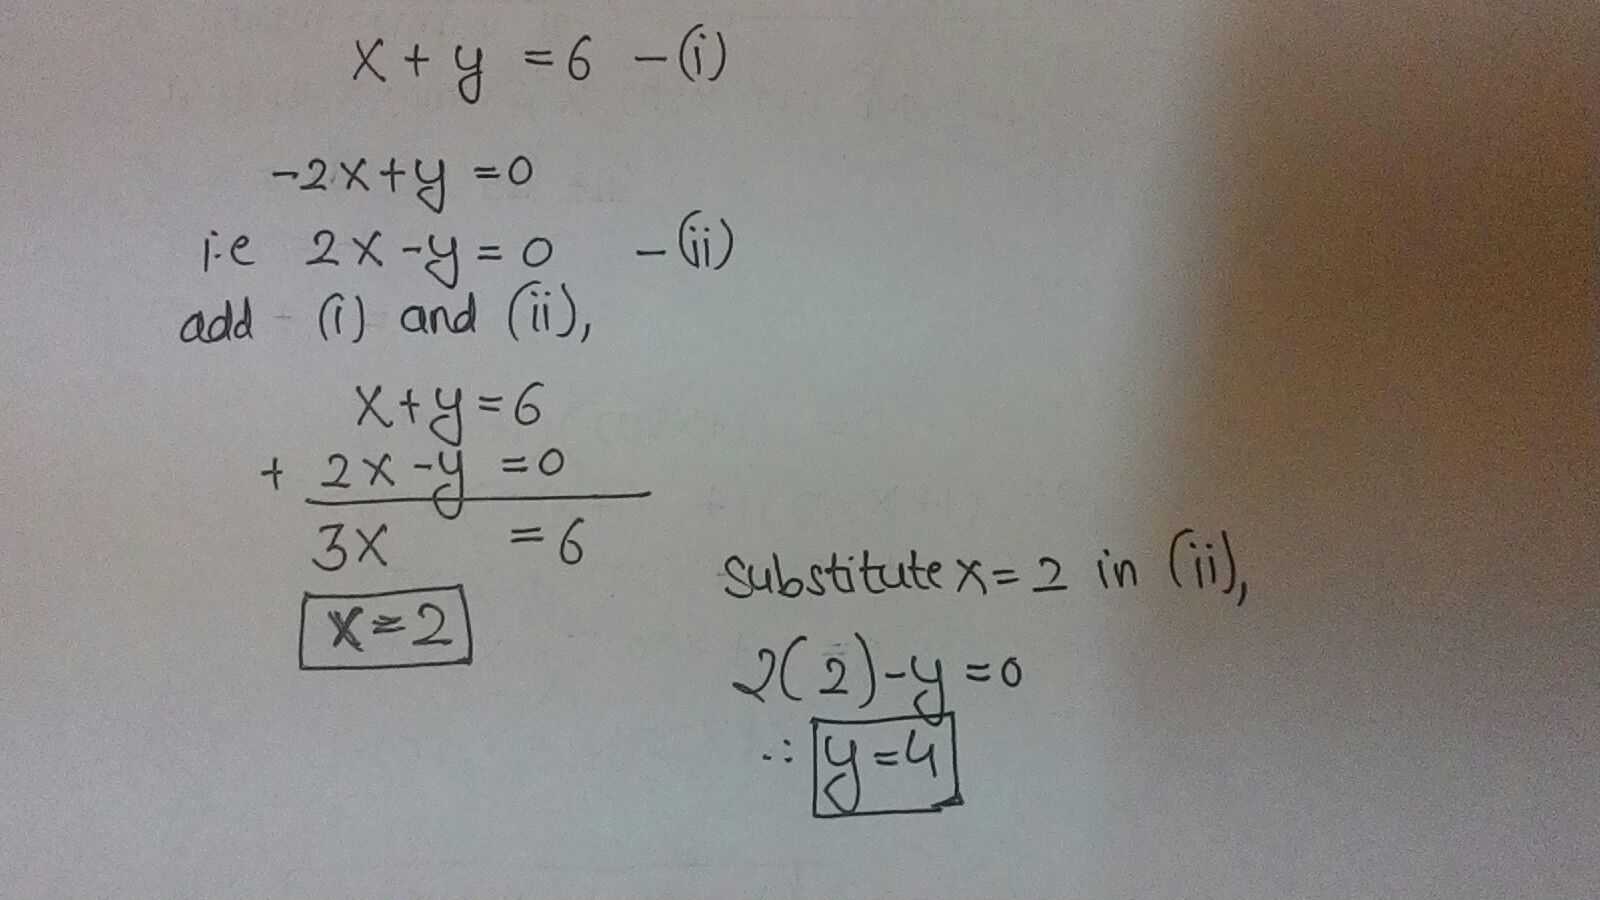 x + y = 6 - (i)
-2x+y = 0
i.e 2x - y = 0 - (ii)
add (i) and (ii),
x + y = 6
+ 2x - y = 0
3x = 6
x = 2
Substitute x = 2 in (ii),
2(2) - y = 0
∴ y = 4